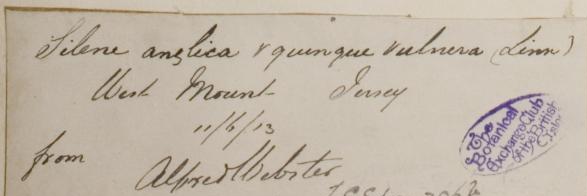 Silene anglica v quinque vulnera (Linn)
West Mount Jersey
11/6/13
from
Alfred Webster
The
Botanical
Exchange Club
of the British
Isles